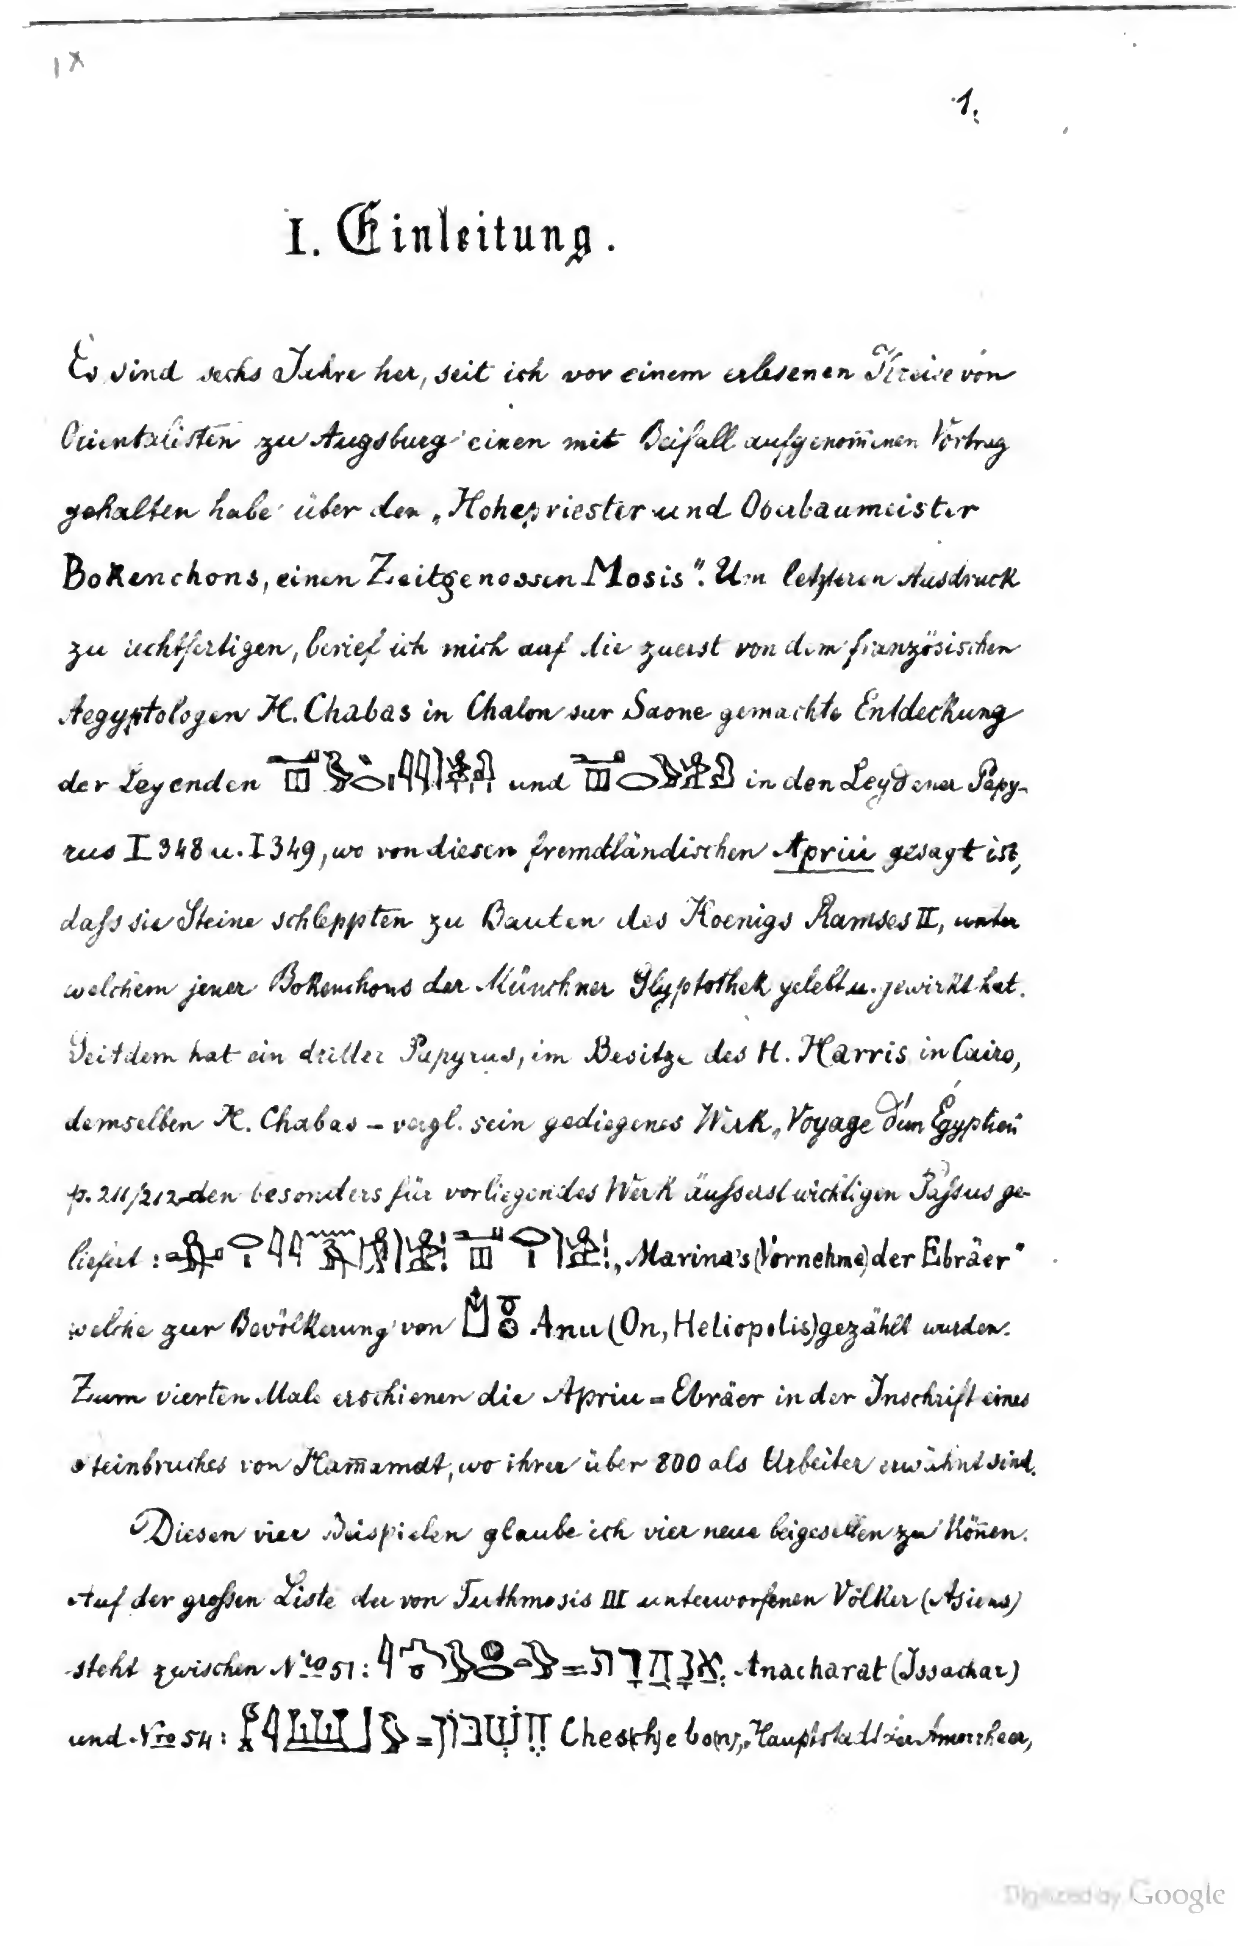 IX
1.
I. Einleitung.
Es sind sechs Jahre her, seit ich vor einem erlesenen Kreise von
Orientalisten zu Augsburg einen mit Beifall aufgenom̅enen Vortrag
gehalten habe über den „Hohepriester und Oberbaumeister
Bokenchons, einen Zeitgenossen Mosis“. Um letzteren Ausdruck
zu rechtfertigen, berief ich mich auf die zuerst von dem französischen
Aegyptologen H. Chabas in Chalon sur Saone gemachte Entdeckung
der Legenden und in den Leydener Papy-
rus I 348 u. I 349, wo von diesen fremdländischen Apriu gesagt ist,
daſs sie Steine schleppten zu Bauten des Koenigs Ramses II, unter
welchem jener Bokenchons der Münchner Glyptothek gelebt u. gewirkt hat.
Seitdem hat ein dritter Papyrus, im Besitze des H. Harris in Cairo,
demselben H. Chabas – vergl. sein gediegenes Werk „Voyage d'un Égyptien“
p. 211/212 – den besonders für vorliegendes Werk äuſserst wichtigen Paſsus ge-
liefert: „Marina's (Vornehme) der Ebräer“
welche zur Bevölkerung von Anu (On, Heliopolis) gezählt wurden.
Zum vierten Male erschienen die Apriu = Ebräer in der Inschrift eines
Steinbruches von Ham̅amât, wo ihrer über 800 als Arbeiter erwähnt sind.
Diesen vier Beispielen glaube ich vier neue beigesellen zu kön̅en.
Auf der groſsen Liste der von Tuthmosis III unterworfenen Völker (Asiens)
steht zwischen Nro 51: = אֲנָחֲרָת Anacharat (Issachar)
und Nro 54: = חֶשְׁבּוֹן Chesch
Digitized by Google